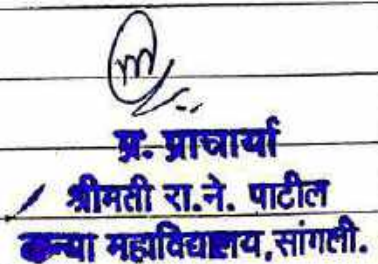 m
प्र. प्राचार्या
श्रीमती रा.ने. पाटील
कन्या महाविद्यालय, सांगली.